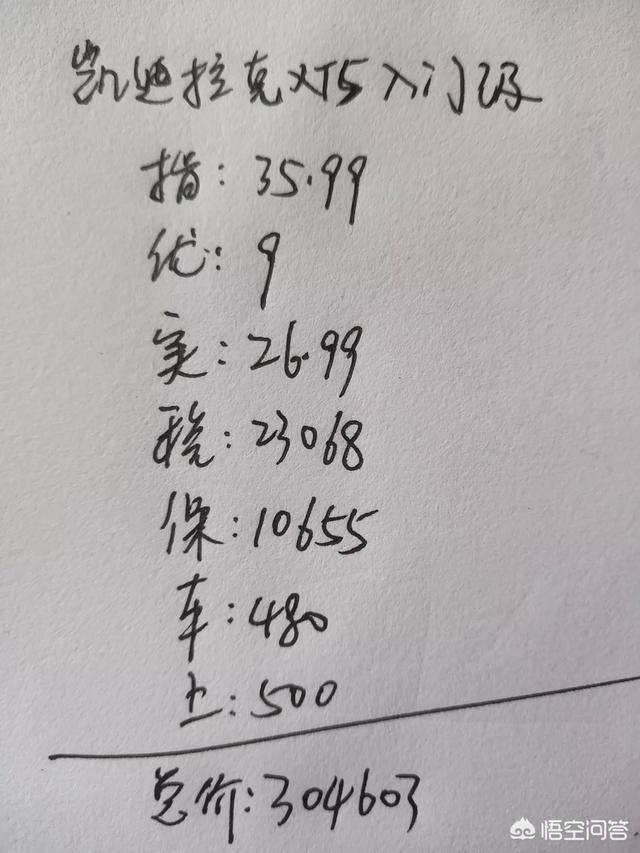 凯迪拉克XT5入门级
指:35.99
优:9
实:26.99
税:23068
保:10655
车:480
上:500
总价:304603
悟空问答